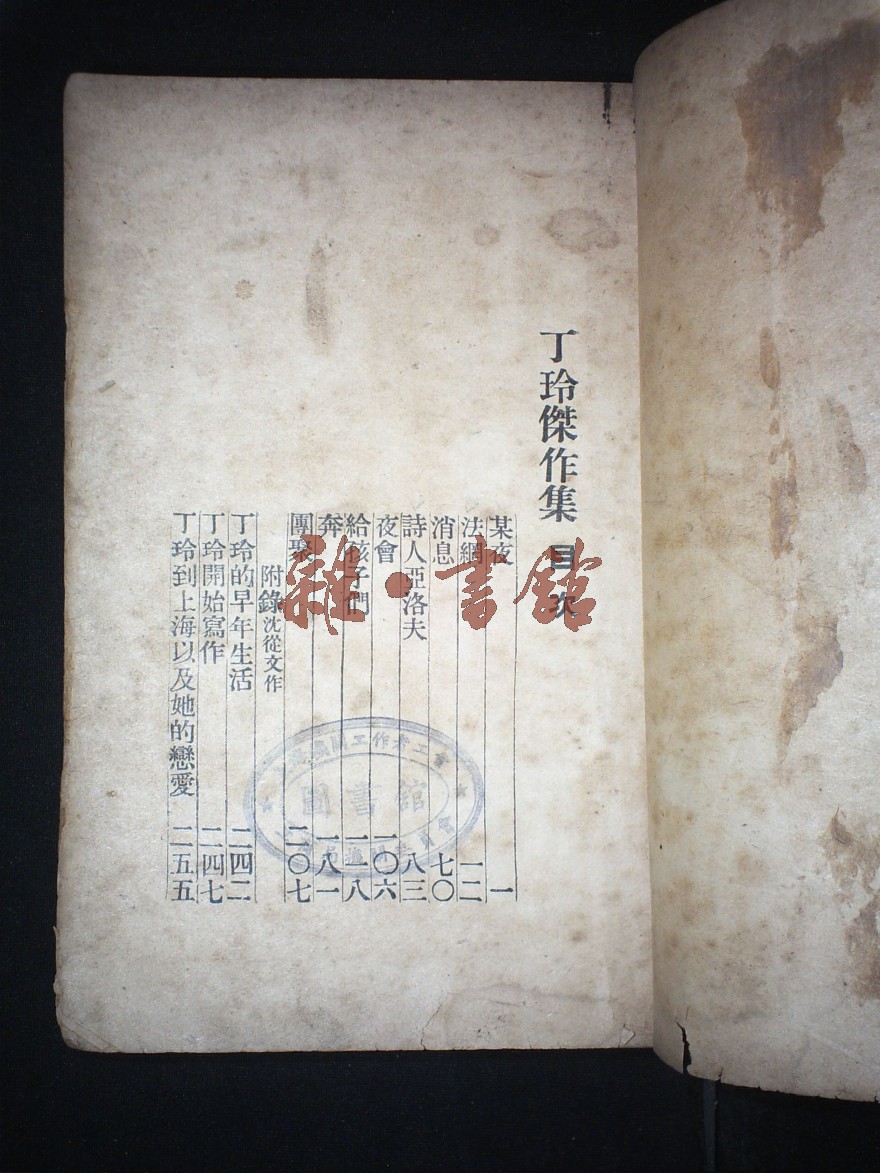 丁玲傑作集 目次
某夜 一
法網 一二
消息 七〇
詩人亞洛夫 八三
夜會 一〇六
給孩子們 一一八
奔 一八一
團聚 二〇七
附錄 沈從文作
丁玲的早年生活 二四二
丁玲開始寫作 二四七
丁玲到上海以及她的戀愛 二五五
雜·書館
工作者工會
圖書館